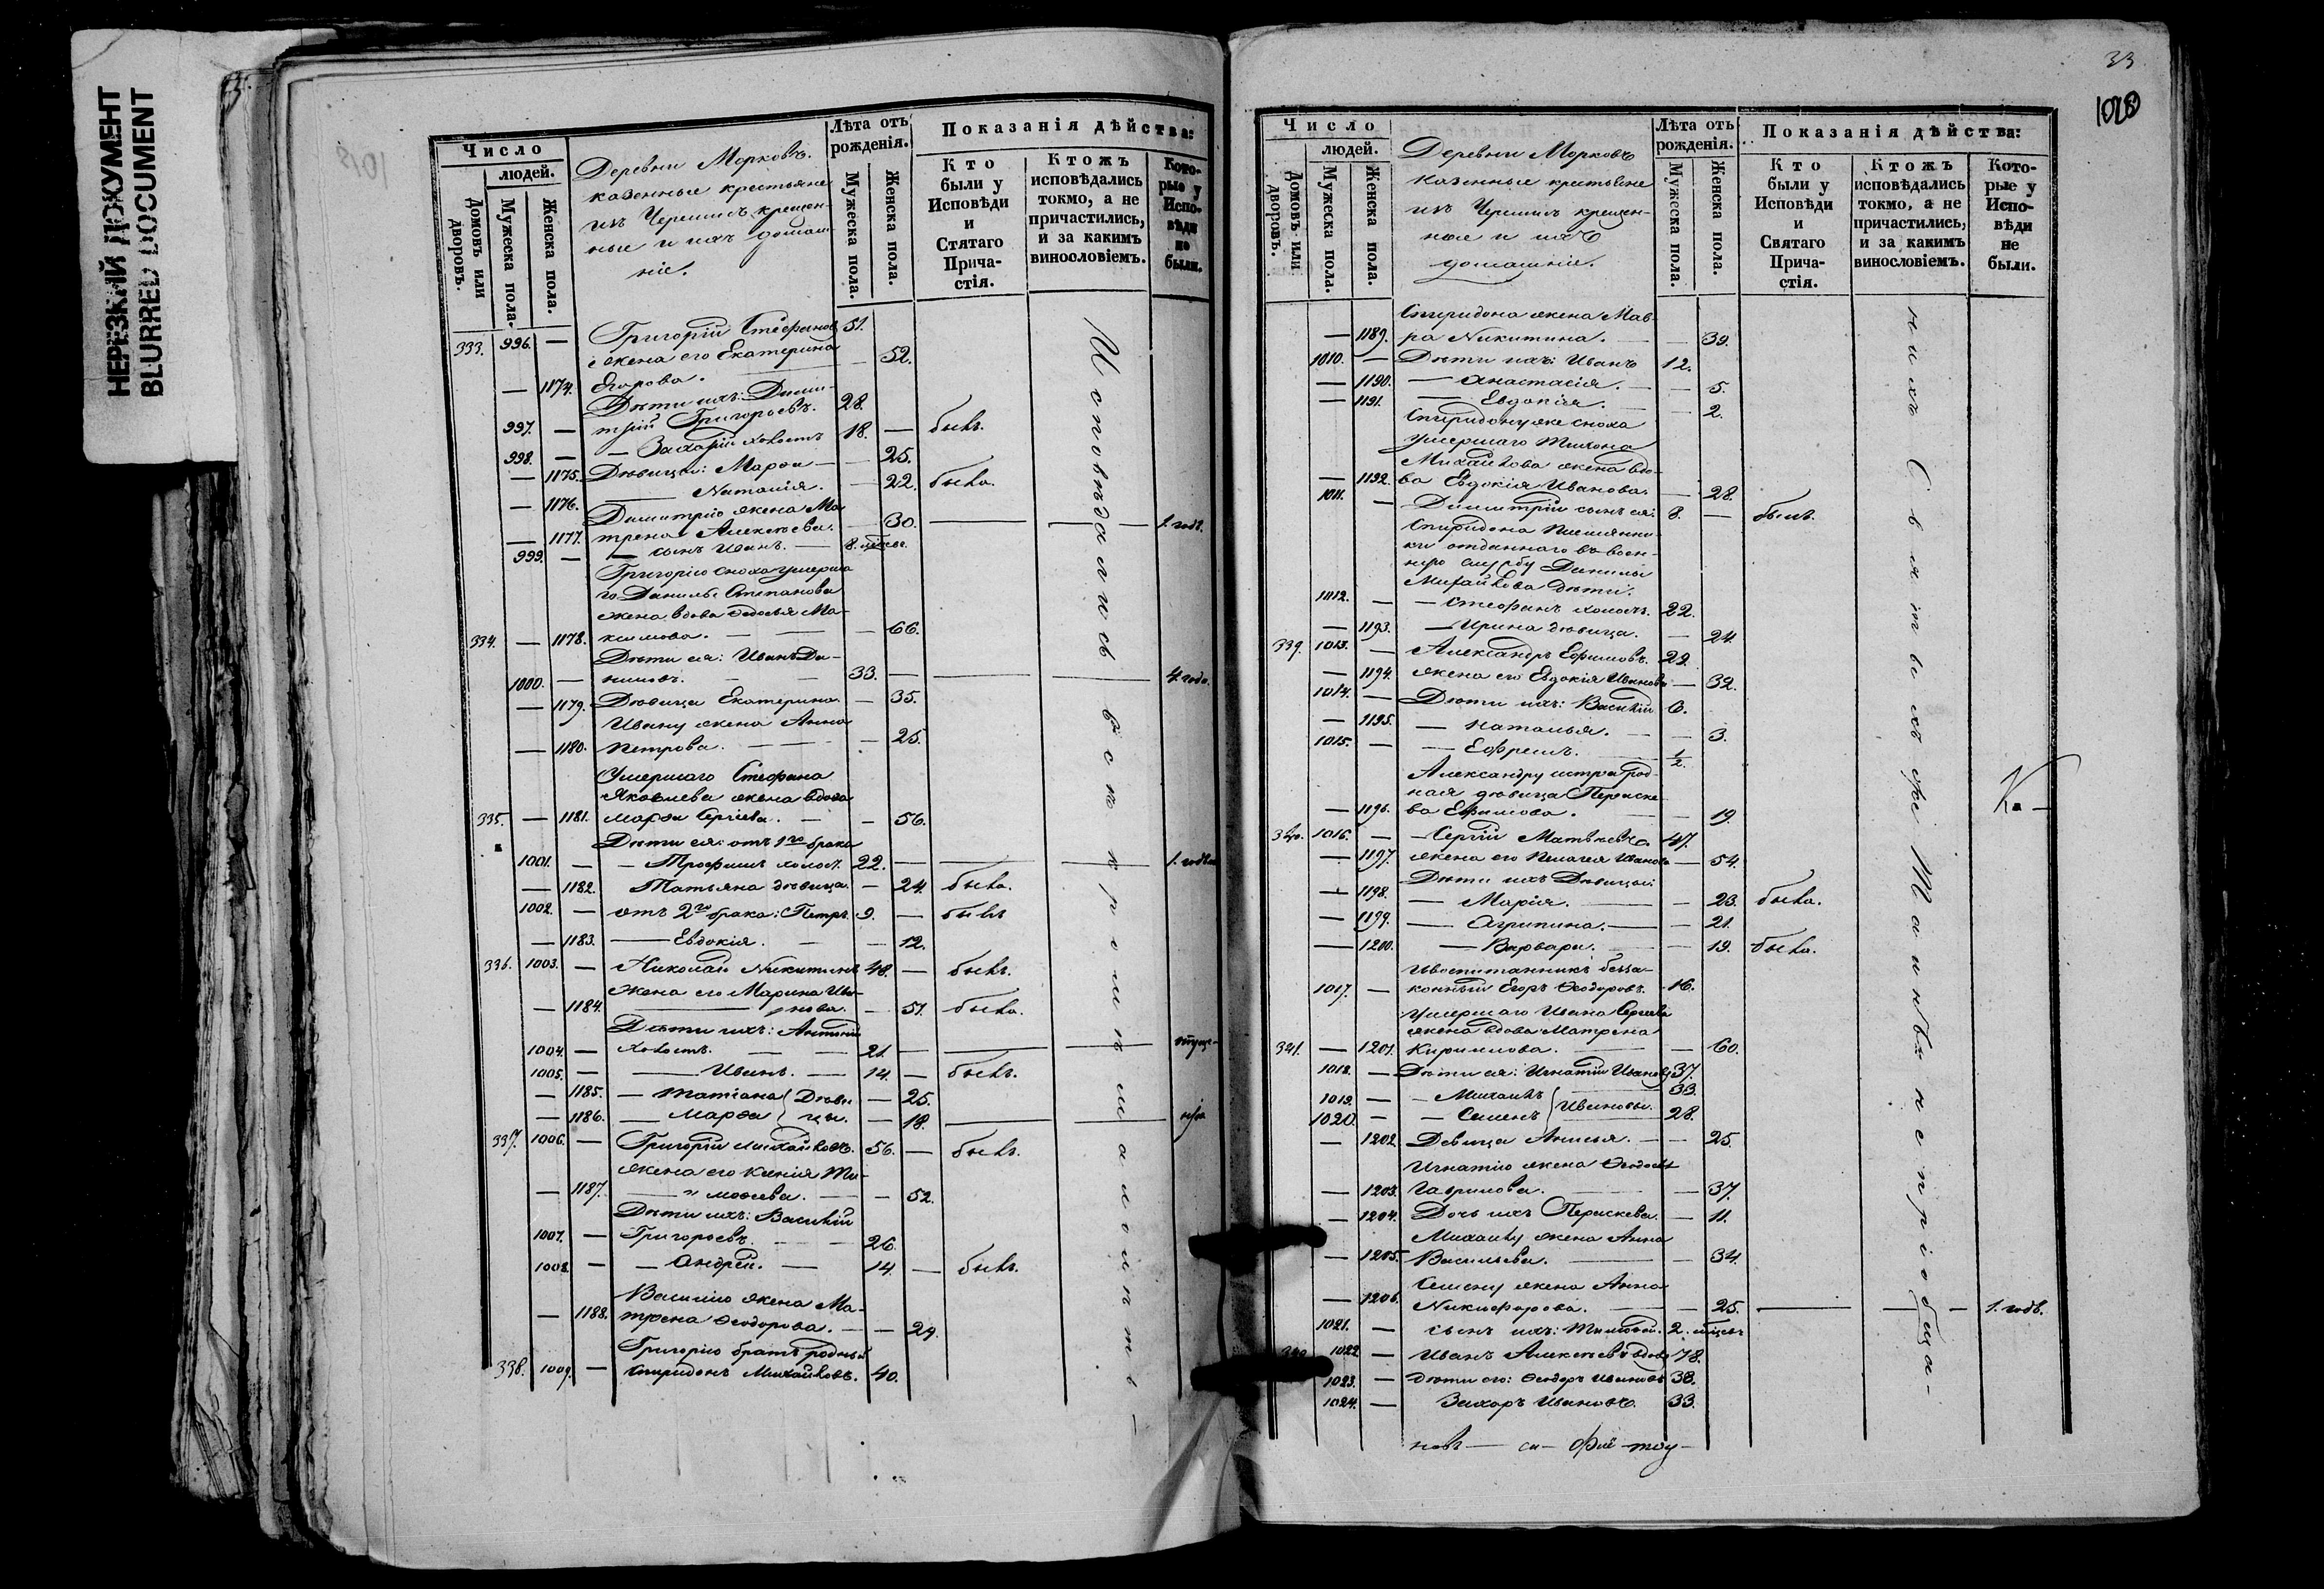 НЕРЕЗКИЙ ДОКУМЕНТ
BLURRED DOCUMENT
Число
людей.
Домовъ или дворовъ.
Мужеска пола.
Женска пола.
Деревни Морковъ.
казенные крестьяне
изъ Черемисъ крещен-
ные и ихъ домаш
ніе.
Лѣта отъ рожденія.
Мужеска пола.
Женска пола.
Показанія дѣйства:
Кто были у Исповѣди и Стятаго Прича-стія.
Ктожъ исповѣдались токмо, а не причастились, и за какимъ винословіемъ.
Кото-рые у Испо-вѣди не были.
333. 996. — Григорій Стефановъ 51.
жена его Екатерина — 52.
— 1174. Егорова.
Дѣти ихъ: Дими-
997. — трій Григорьевъ. 28.
998. — — Захарій холостъ 18. — былъ.
— 1175. Дѣвицы: Марѳа — — 25.
— 1176. Наталія. — 22. была.
Димитрію жена Ма
— 1177. трена Алексѣева. — 30. — — 1. годъ.
999. — — сынъ Иванъ. — 8. мѣсяц.
Григорію сноха умерша
го Данилы Степанова
жена вдова Ѳедосья Ма-
334. — 1178. ксимова. — — — 66.
Дѣти ея: Иванъ Да-
1000. — ниловъ. — — 33. — — — 4. года.
— 1179. Дѣвица Екатерина. — 35.
Ивану жена Анна
— 1180. Петрова. — — — 25.
Умершаго Стефана
Яковлева жена вдова
335. — 1181. Марѳа Сергіева. — — 56.
Дѣти ея: отъ 1го брака
1001. — — Трофимъ холостъ. 22. — — — 1. годъ
— 1182. Татьяна дѣвица. — 24. была.
1002. — отъ 2го брака: Петръ. 9. — былъ
— 1183. — Евдокія. — — 12.
336. 1003. — Николай Никитинъ 48. — былъ.
жена его Марина Ива-
— 1184. — нова. — 51. была.
Дѣти ихъ: Антоній
1004. — холостъ. — — 21. — — —
1005. — — Иванъ. — 14. — былъ.
— 1185. — Татіана } Дѣви — 25.
— 1186. — Марѳа } цы. — 18. — —
337. 1006. — Григорій Михайловъ. 56. — былъ.
жена его Ксенія Ти-
— 1187. — моѳеева. — — 52.
Дѣти ихъ: Василій
1007. — Григорьевъ. — — 26.
1008. — — Андрей. — 14. — былъ.
Василію жена Ма-
— 1188. трена Ѳеодорова. — — 24.
Григорію братъ родный
338. 1009. — Спиридонъ Михайловъ. 40.
Исповѣдались
33
1020
Число
людей.
Домовъ или дворовъ.
Мужеска пола.
Женска пола.
Деревни Морковъ
казенные крестьяне
изъ Черемисъ крещен-
ные и ихъ
домашніе.
Лѣта отъ рожденія.
Мужеска пола.
Женска пола.
Показанія дѣйства:
Кто были у Исповѣди и Святаго Прича-стія.
Ктожъ исповѣдались токмо, а не причастились, и за какимъ винословіемъ.
Кото-рые у Испо-вѣди не были.
Спиридона жена Мав-
— 1189. ра Никитина. — — 39.
1010. — Дѣти ихъ: Иванъ 12.
— 1190. — Анастасія. — — 5.
— 1191. — Евдокія. — — 2.
Спиридону же сноха
умершаго Тихона
Михайлова жена вдо-
— 1192. ва Евдокія Иванова. — 28.
1011. — Димитрій сынъ ея: 8. — былъ.
Спиридона племянни-
ки отданнаго въ воен-
ную службу Данилы
Михайлова дѣти:
1012. — — Стефанъ холостъ. 22.
— 1193. — Ирина дѣвица. — 24.
339. 1013. — Александръ Ефимовъ. 29.
— 1194. жена его Евдокія Иванова — 32.
1014. — Дѣти ихъ: Василій 6.
— 1195. — Наталья. — — 3.
1015. — — Ефремъ. — 1/2.
Александру сестра род-
ная дѣвица Параске-
— 1196. ва Ефимова. — 19.
340. 1016. — — Сергій Матвѣевъ 47.
— 1197. жена его Пелагея Иванова — 54.
Дѣти ихъ Дѣвицы:
— 1198. — Марія. — — 23. была.
— 1199. — Агрипина. — — 21.
— 1200. — Варвара. — — 19. была.
Ивоспитанникъ безза-
1017. — конный Егоръ Ѳеодоровъ. 16.
Умершаго Ивана Сергѣева
жена вдова Матрена
341. — 1201. Кирилова. — — 60.
1018. — Дѣти ея: Игнатій Ивановъ 37.
1019. — — Михаилъ } Ивановы. 33.
1020. — — Семенъ 28.
— 1202. Девица Анисья. — — 25.
Игнатію жена Ѳеодосья
— 1203. Гаврилова. — — 37.
— 1204. Дочь ихъ Параскева. — 11.
Михаилу жена Анна
— 1205. Васильева. — — 34.
Семену жена Анна
— 1206. Никифорова. — — 25. — — 1. годъ.
1021. — сынъ ихъ: Тимофей. 2. мѣсяцъ
1022. — Иванъ Алексѣевъ вдовъ 78.
1023. — Дѣти его: Ѳеодоръ Ивановъ 38.
1024. — Захаръ Ивановъ. 33.
нихъ Святыхъ же Таинъ не пріобща-